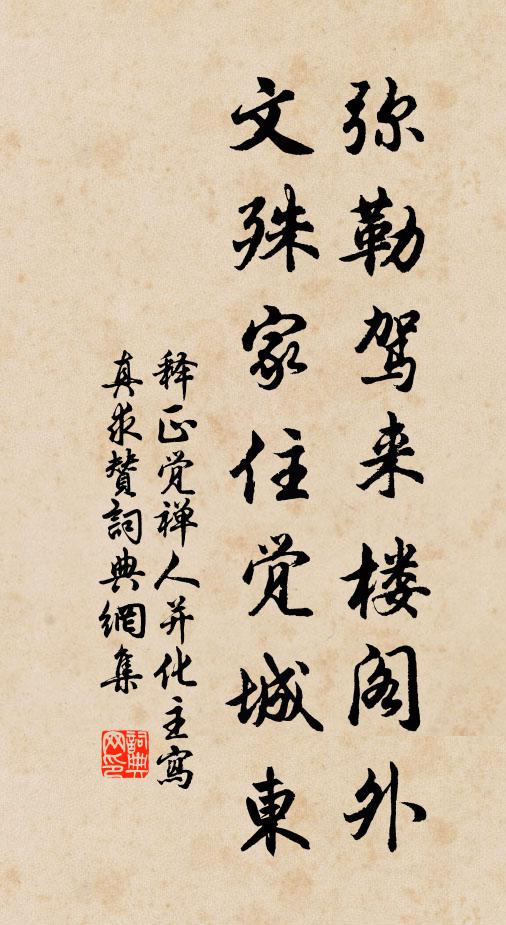 弥勒驾来楼阁外
文殊家住觉城東
释正觉禅人并化主寫
真求赞詞典網集
詞典
网印